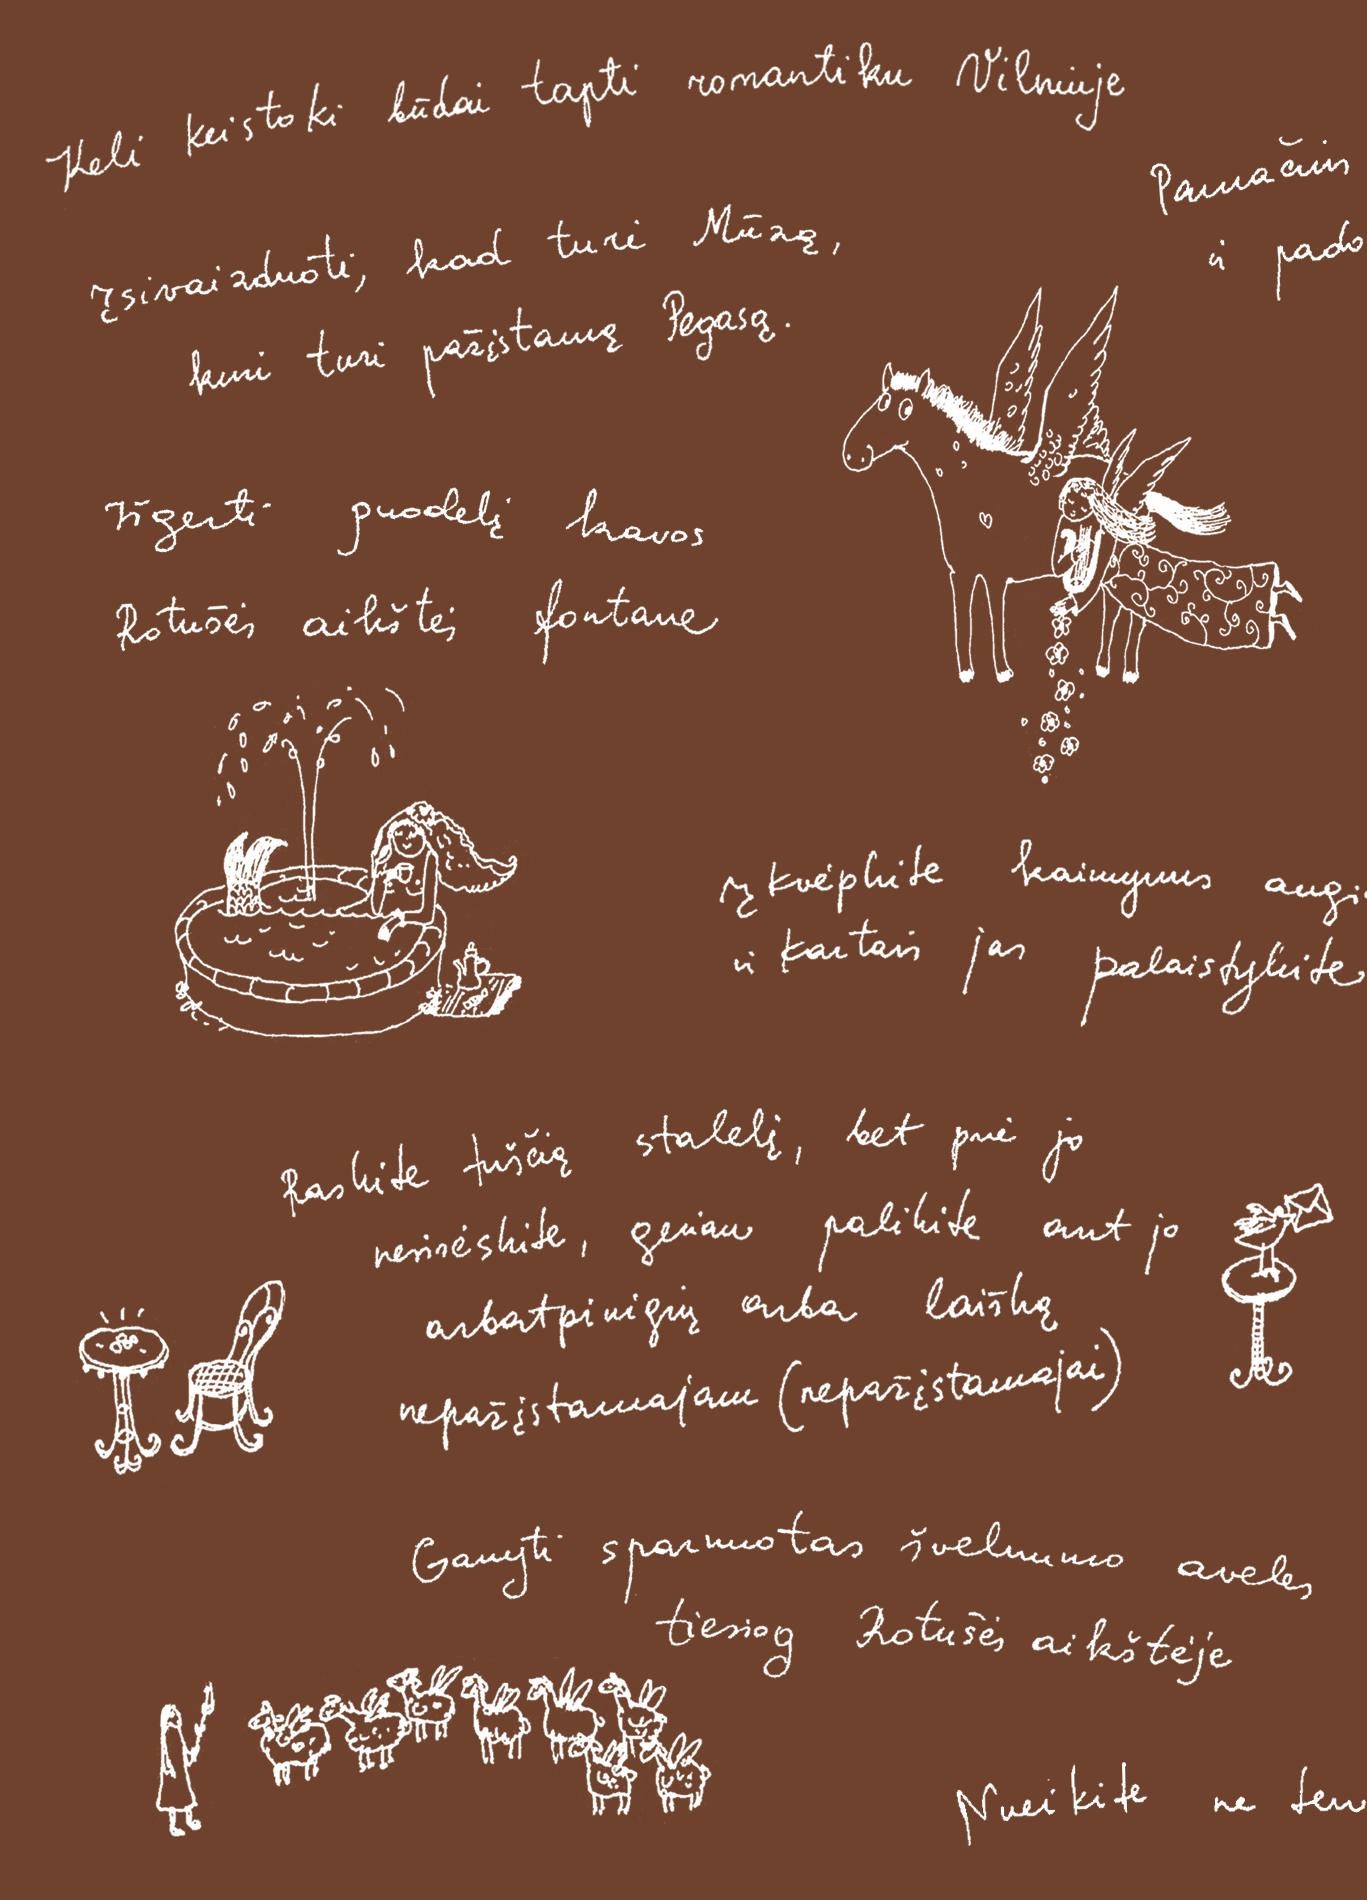 Keli keistoki būdai tapti romantiku Vilniuje
Pamačius
ir pado
Įsivaizduoti, kad turi Mūzą,
kuri turi pažįstamą Pegasą.
Išgerti puodelį kavos
Rotušės aikštės fontane
Įkvėpkite kaimynus augi
ir kartais jas palaistykite
Raskite tuščią stalelį, bet prie jo
nesisėskite, geriau palikite ant jo
arbatpinigių arba laišką
nepažįstamajam (nepažįstamajai)
Ganyti sparnuotas švelnumo aveles
tiesiog Rotušės aikštėje
Nueikite ne ten